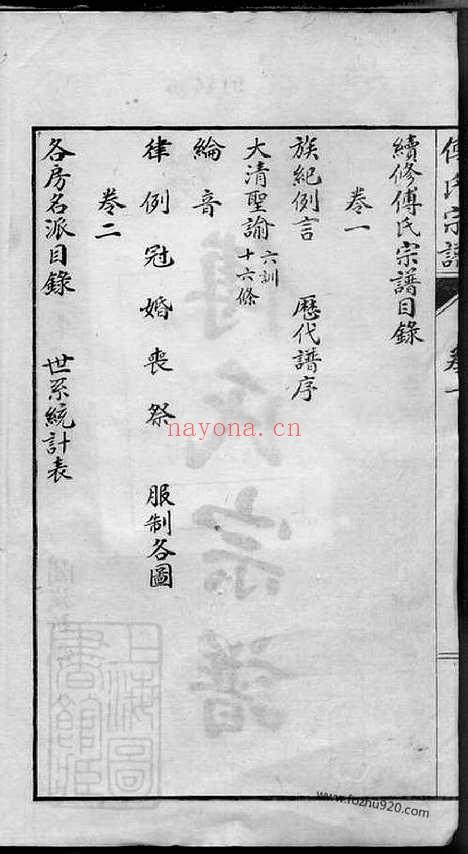 傅氏宗譜
卷一
續修傅氏宗譜目錄
卷一
族紀例言 歷代譜序
大清聖諭 六訓 十六條
綸音
律例冠婚喪祭 服制各圖
卷二
各房名派目錄 世系統計表
傅氏宗譜
上海圖書館藏
nayona.cn
www.fozhu920.com